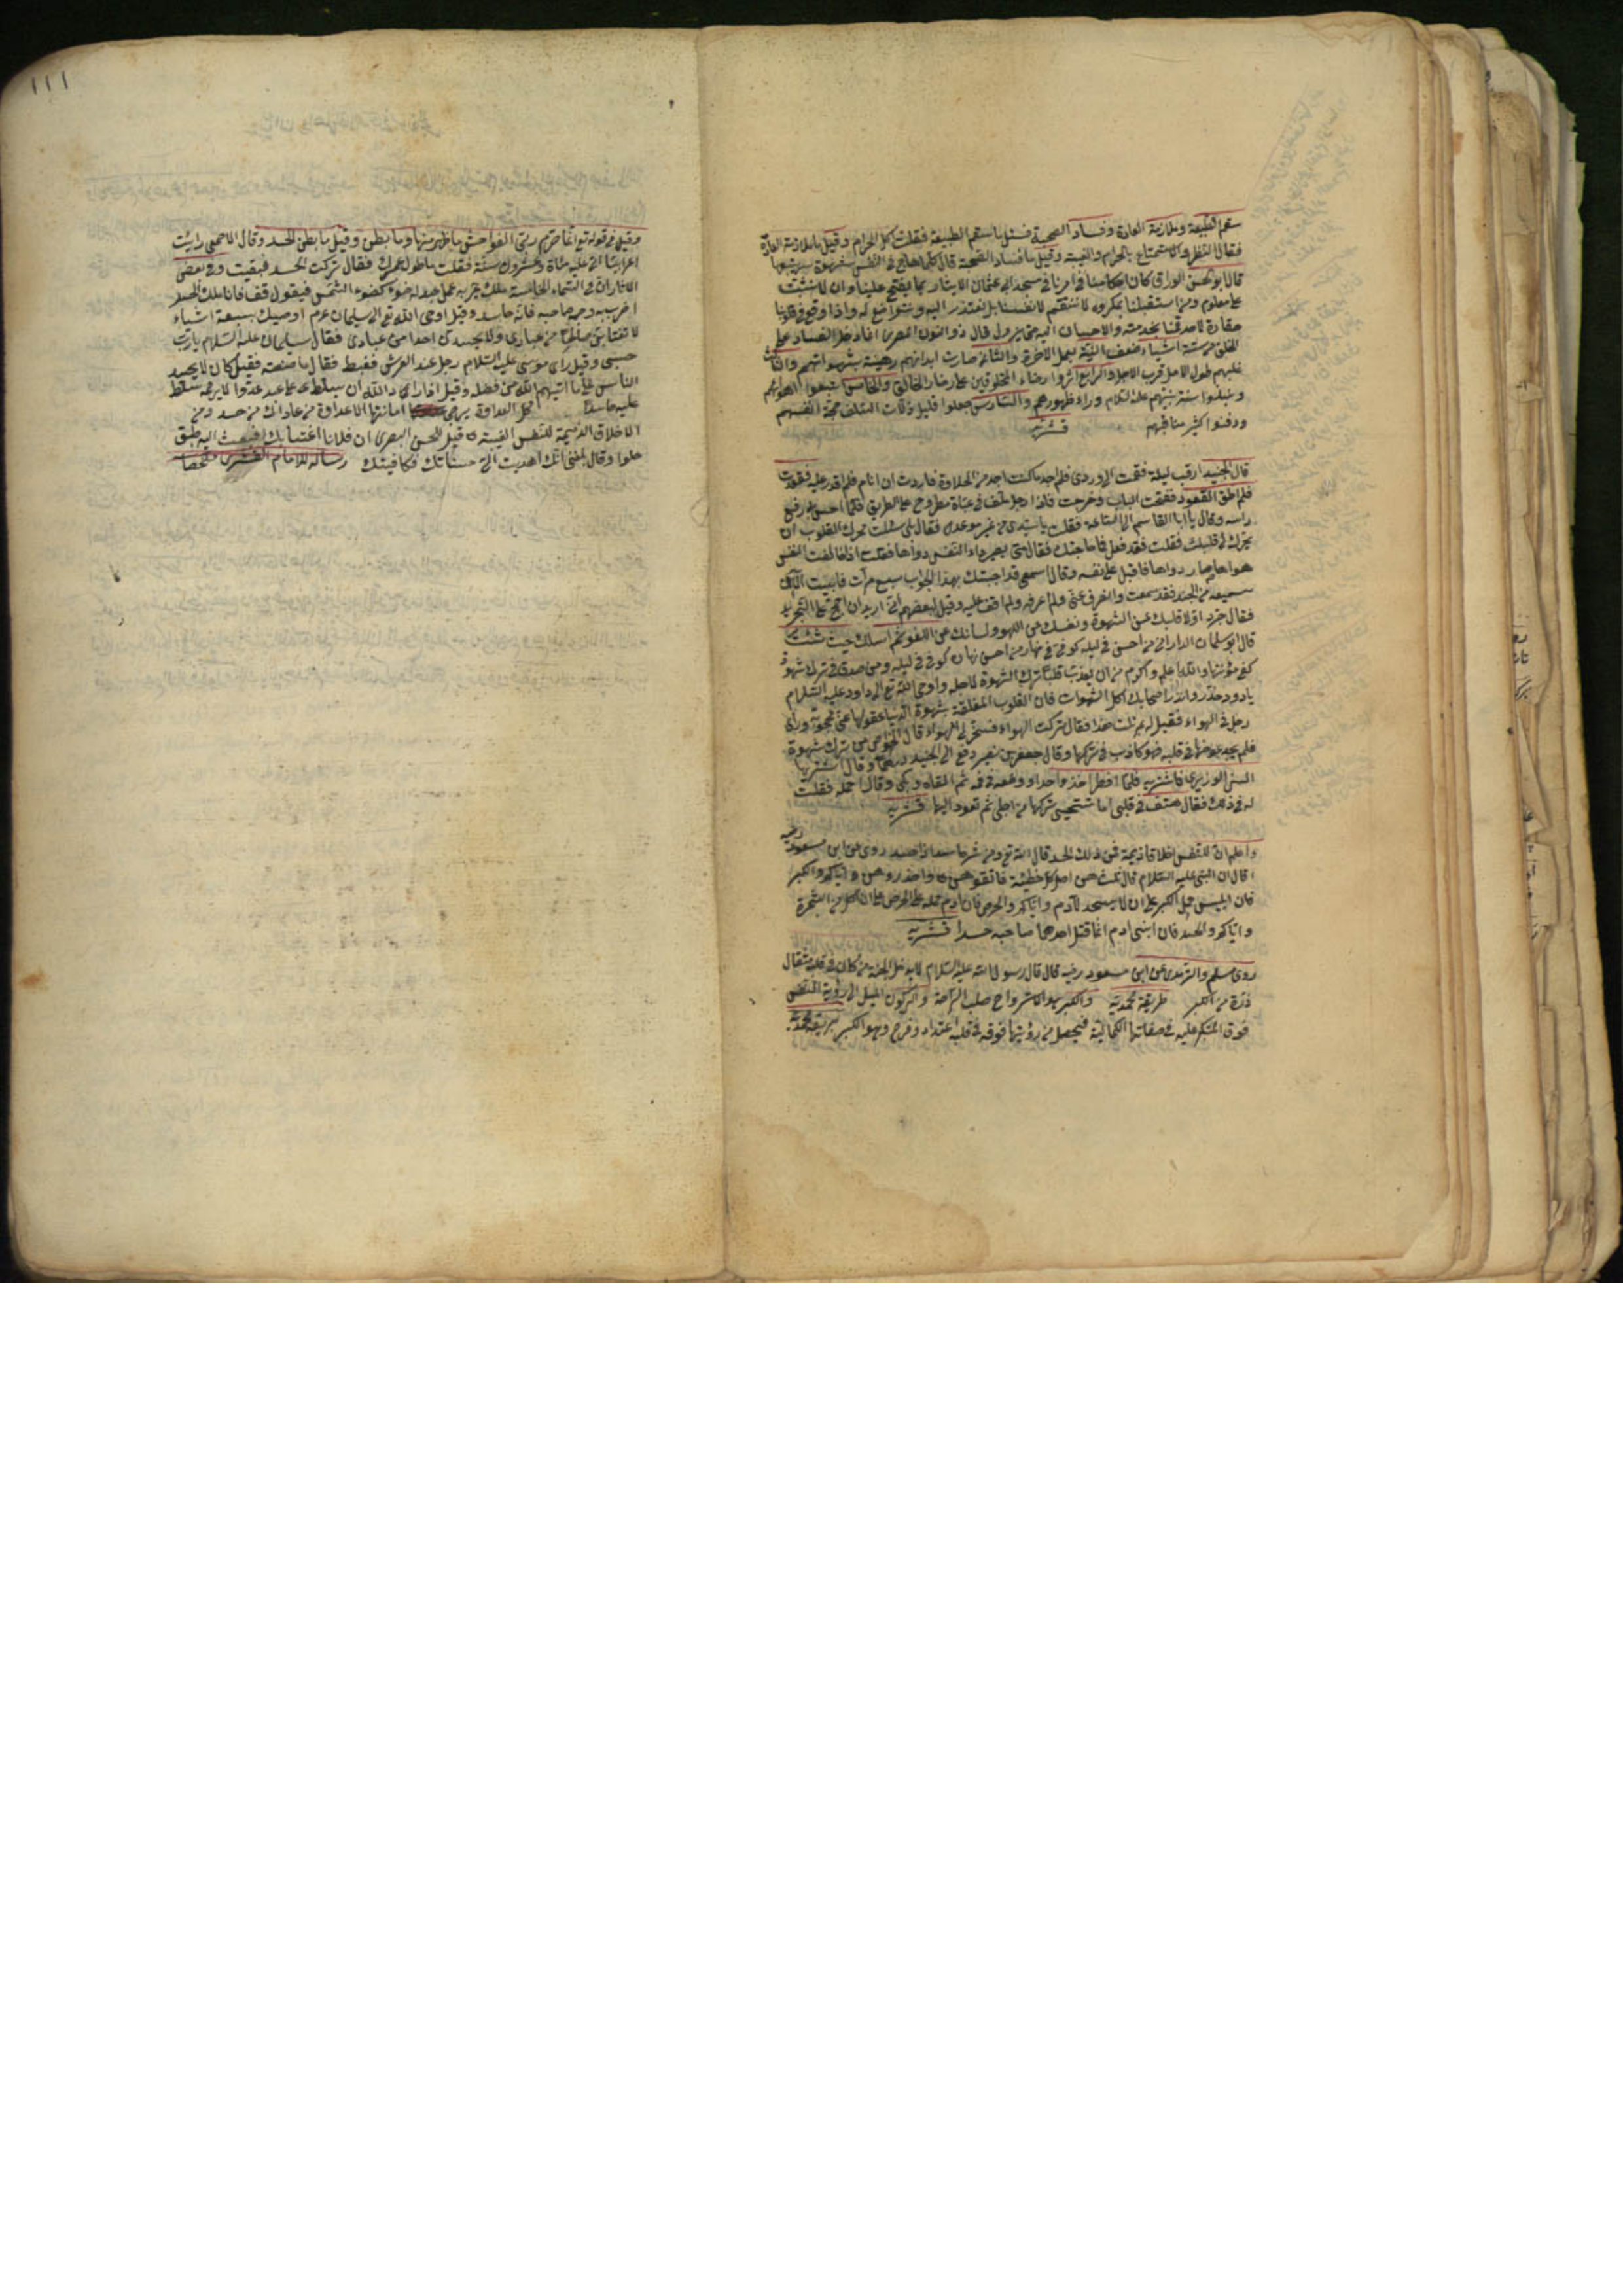 سقم الطبيعة وملازمة العادة وفساد الصحبة فسئل ما سقم الطبيعة فقلت اكل الحرام وقيل ما ملازمة العادة
فقال النظر والاستمتاع بالحرام والغيبة وقيل ما فساد الصحبة قال كلما هاج في النفس شهوة يتبعها
قال ابو الحسن الوراق كان احكامنا في امرنا في مسجد ابي عثمان الايثار بما يفتح علينا وان لا نبيت
على معلوم ومن استقبلنا بمكروه لا ننتقم لانفسنا بل نعتذر اليه ونتواضع له واذا وقع في قلوبنا
حقارة لاحد قمنا بخدمته والاحسان اليه حتى يزول قال ذو النون المصرى انما دخل الفساد على
الخلق من ستة اشياء ضعف النية بعمل الآخرة والثاني صارت ابدانهم رهينة بشهواتهم والثالث
غلبهم طول الامل قرب الاجل والرابع آثروا رضاء المخلوقين على رضاء الخالق والخامس اتبعوا اهوائهم
ونبذوا سنة نبيهم عليه السلام وراء ظهورهم والسادس جعلوا قليل زلات السلف حجة انفسهم
ودفنوا كثير مناقبهم قشيريه
قال الجنيد ارقت ليلة فقمت الى وردى فلم اجد ما كنت اجد من الحلاوة فاردت ان انام فلم اقدر عليه فقعدت
فلم اطق القعود ففتحت الباب وخرجت فاذا رجل ملتف في عباة مطروح على الطريق فلما احس بي رفع
راسه وقال يا ابا القاسم الى الساعة فقلت يا سيدى من غير موعد فقال بلى سئلت محرك القلوب ان
يحرك لى قلبك فقلت فقد فعل فما حاجتك فقال متى يصير داء النفس دواها فقلت اذا خالفت النفس
هواها صار دواها فاقبل على نفسه وقال اسمعى قد اجبتك بهذا الجواب سبع مرات فابيت الا ان
تسمعيه من الجنيد فقد سمعت وانصرف عنى ولم اعرفه ولم اقف عليه وقيل لبعضهم انى اريد ان احج على التجريد
فقال جرد اولا قلبك عن الشهوة ونفسك عن اللهو ولسانك عن اللغو ثم اسلك حيث شئت
قال ابو سليمان الدارانى من احسن في ليله كوفى في نهاره من احسن نهاره كوفى في ليله ومن صدق في ترك شهوة
كفى مؤنتها والله اعلم واكرم من ان يعذب قلبا ترك الشهوة لاجله واوحى الله تع الى داود عليه السلام
يا داود حذر وانذر اصحابك اكل الشهوات فان القلوب المغلقة بشهوة الدنيا عقولها عنى محجوبة ورأى
رجل في الهواء فقيل له بم نلت هذا فقال تركت الهواء فسخر لى الهواء قال الخواص من ترك شهوة
فلم يجد عوضها في قلبه فهو كاذب في تركها وقال جعفر بن نصير دفع الى الجنيد درهما وقال اشتر بها
التين الوزيرى فاشتريه فلما افطر اخذ واحدا ووضعه في فمه ثم القاه وبكى وقال احمله فقلت
له في ذلك فقال هتف في قلبى اما تستحيى تركتها من اجلى ثم تعود اليها قشيريه
واعلم ان للنفس اخلاقا ذميمة فمن ذلك الحسد قال الله تع ومن شر حاسد اذا حسد روى عن ابن مسعود رضيه
قال ان النبى عليه السلام قال ثلث هن اصل كل خطيئة فاتقوهن واحذروهن واياكم والكبر
فان ابليس حمله الكبر على ان لا يسجد لآدم واياكم والحرص فان آدم حمله على الحرص على ان اكل من الشجرة
واياكم والحسد فان ابنى آدم انما قتل احدهما صاحبه حسدا قشيريه
روى مسلم والترمذى عن ابن مسعود رضيه قال قال رسول الله عليه السلام لا يدخل الجنة من كان في قلبه مثقال
ذرة من الكبر طريقة محمدية والكبر هو الاسترواح طلب الراحة والركون الميل الى رؤية النفس
فوق المتكبر عليه في صفاتها الكمالية فيحصل من رؤيتها فوقه في قلبه اعتداد وفرح وهو الكبر طريقة محمدية
١١١
وقيل في قوله تع انما حرم ربى الفواحش ما ظهر منها وما بطن وقيل ما بطن الحسد وقال الاصمعى رايت
اعرابيا اتى عليه مائة وعشرون سنة فقلت ما طول عمرك فقال تركت الحسد فبقيت وفي بعض
الاثار ان في السماء الخامسة ملك يمر به عمل عبد له ضوء كضوء الشمس فيقول قف فانا ملك الحسد
اضرب به وجه صاحبه فانه حاسد وقيل اوحى الله تع الى سليمان عرم اوصيك بسبعة اشياء
لا تغتابن صالحا من عبادى ولا يحسدن احدا من عبادى فقال سليمان عليه السلام يا رب
حسبى وقيل راى موسى عليه السلام رجل عند العرش فغبط فقال ما صنعته فقيل كان لا يحسد
الناس على ما اتيهم الله من فضله وقيل اذا اراد الله ان يسلط على عبد عدوا لا يرحمه سلط
عليه حاسدا كل العداوة يرجى اماتتها الا عداوة من عاداك من حسد ومن
الاخلاق الذميمة للنفس الغيبة قيل للحسن البصرى ان فلانا اغتابك فبعث اليه طبق
حلوا وقال بلغنى انك اهديت الى حسناتك فكافيتك رسالة للامام القشيرى ملخصا